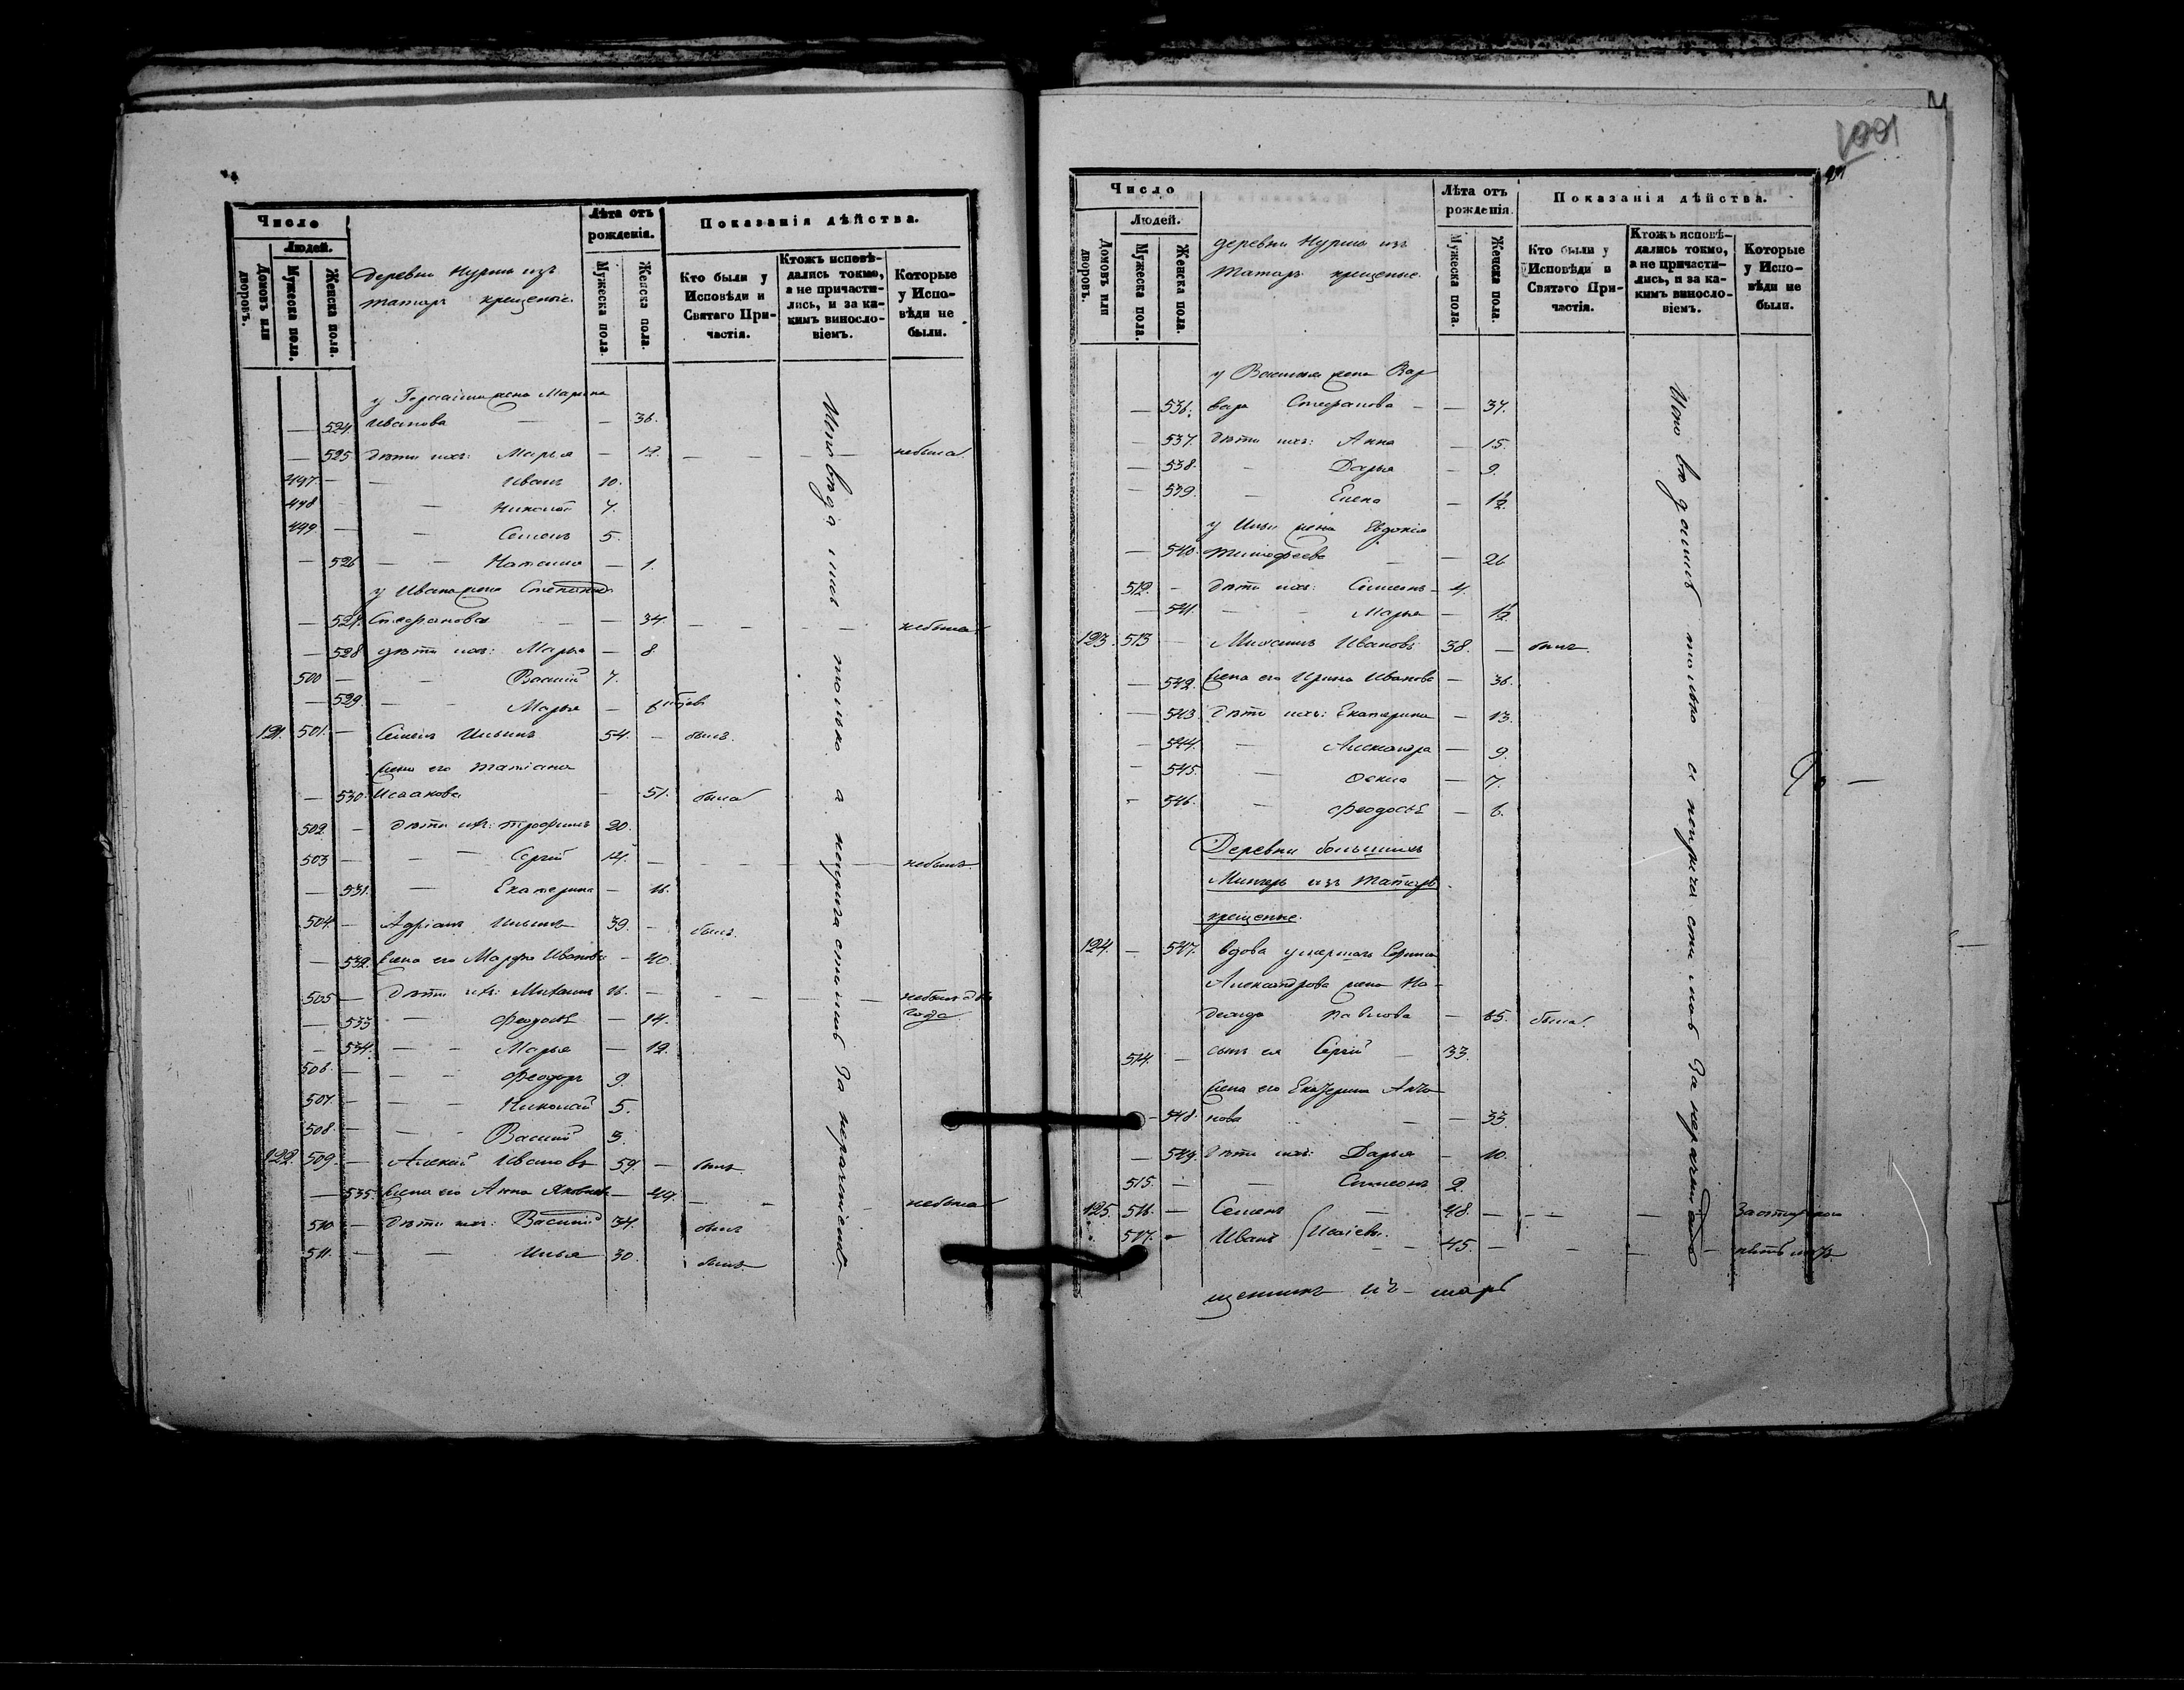 Число
Людей.
Домовъ или дворовъ.
Мужеска пола.
Женска пола.
деревни Нурмы изъ
татаръ крещеные.
Лѣта отъ рожденія.
Мужеска пола.
Женска пола.
Показанія дѣйства.
Кто были у Исповѣди и Святаго Причастія.
Ктожъ исповѣдались токмо, а не причастились, и за какимъ винословіемъ.
Которые у Исповѣди не были.
у жена Марина
— 524. Иванова — — 36.
— 525 дѣти ихъ: Марья — 12. — — — — небыла
497. — — Иванъ 10.
498 — Николай 7.
499 — — Семенъ 5.
— 526 — — Наталья — 1.
у Ивана жена Степанида
— 527. Стефанова — — 34 — — — — небыла
— 528 дѣти ихъ: Марья — 8.
500 — — Василій 7.
— 529. — — Марья — 6
121. 501. — Семенъ Ильинъ 54. — былъ.
жена его Татіана
— 530. Исаакова — 51. была
502. — дѣти ихъ: Трофимъ 20.
503 — — Сергій 14. — — — — небылъ.
— 531. — Екатерина — 16.
504. — Адріанъ Ильинъ 39. — былъ.
— 532. жена его Марфа Иванова — 40.
505 — дѣти ихъ: Михаилъ 16. — — — — небылъ два
года
— 533 — Феодосья — 14.
— 534. — — Марья — 12.
506. — — — Феодоръ 9.
507. — — — Николай 5.
508. — — — Василій 3.
122. 509. — Алексій Ивановъ 59. — былъ
— 535. жена его Анна Яковлева — 44. — — небыла
510 — дѣти ихъ: Василій 34. былъ
511. — — Илья 30. былъ.
Исповѣдались только а непричастились за неразвитіемъ.
1001
Число
Людей.
Домовъ или дворовъ.
Мужеска пола.
Женска пола.
деревни Нурмы изъ
татаръ крещеные.
Лѣта отъ рожденія.
Мужеска пола.
Женска пола.
Показанія дѣйства.
Кто были у Исповѣди и Святаго Причастія.
Ктожъ исповѣдались токмо, а не причастились, и за какимъ винословіемъ.
Которые у Исповѣди не были.
у Василья жена Вар
— 536. вара Стефанова — — 37.
— 537. дѣти ихъ: Анна — 15.
— 538. — Дарья — 9.
— 539. — Елена — 1/2.
у Ильи жена Евдокія
— 540. Тимофеева — — 26
512. — дѣти ихъ: Симеонъ 4.
— 541. — — Марья — 1/2.
123. 513 — Михаилъ Ивановъ 38. — былъ.
— 542. жена его Ирина Иванова — 36.
— 543. дѣти ихъ: Екатерина — 13.
— 544. — Александра — 9.
— 545. — — 7.
— 546. — Феодосья — 6.
Деревни большихъ
изъ татаръ
крещеные.
124. — 547. вдова умершаго
Александрова жена На
дежда Павлова — 65. была.
514. — сынъ ея Сергій — 33.
жена его Екатерина
— 548. нова — — 33.
— 549. дѣти ихъ: Дарья — 10.
515. — — Симеонъ 2.
125. 516. — Семенъ — 48. — — — —
517. — Иванъ } Исаіевы. — 45. — — — —
Исповѣдались только а непричастились за неразвитіемъ